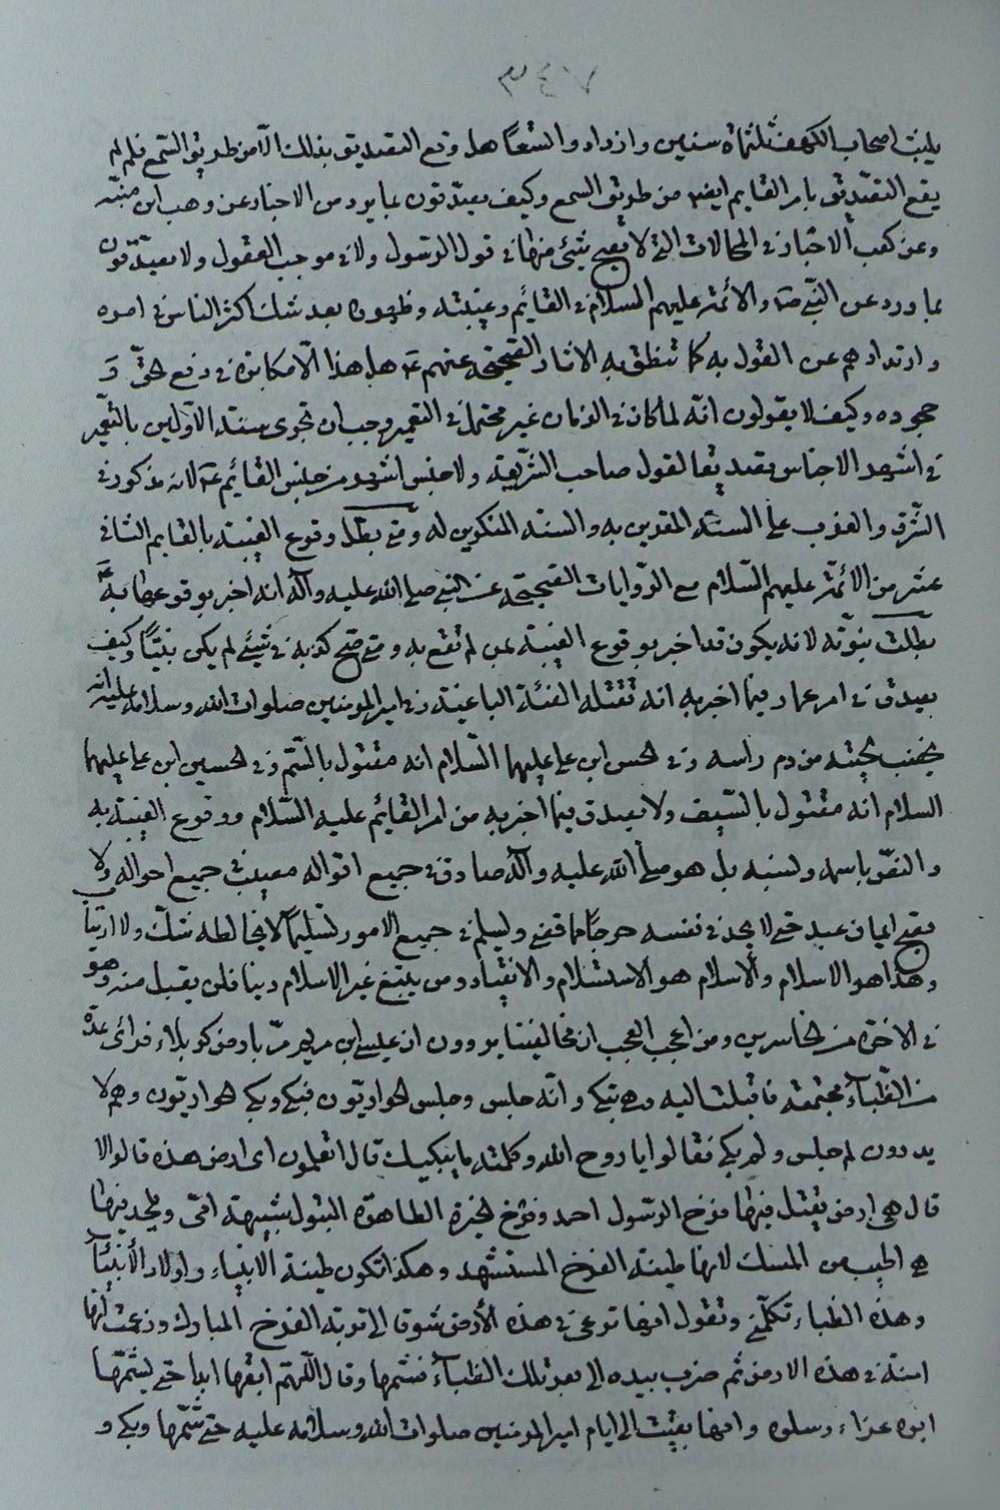 ٣٤٧
يلبث اصحاب الكهف ثلثمائة سنين وازدادوا تسعا هل وقع التصديق بذلك الا من طريق السمع فلم لم
يقع التصديق بامر القايم ايضا من طريق السمع وكيف يصدقون بما يرد من الاخبار عن وهب ابن منبه
وعن كعب الاحبار في المحالات التي لا يصح شئ منها في قول الرسول ولا في موجب العقول ولا يصدقون
بما ورد عن النبي ص والائمة عليهم السلام في القائم وغيبته وظهوره بعد شك اكثر الناس في امره
وارتدادهم عن القول به كما تنطق به الاثار الصحيحة عنهم ع هل هذا الا مكابرة في دفع الحق و
جحوده وكيف لا يقولون انه لما كان في الزمان غير محتمل في التعمير وجب ان تجرى سنة الاولين بالتعمير
في اشهر الاجناس تصديقا لقول صاحب الشريعة ولا جنس اشهر من جنس القائم ع لانه مذكور في
الشرق والغرب على السنة المقرين به والسنة المنكرين له ومتى بطل وقوع الغيبة بالقايم الثاني
عشر من الائمة عليهم السلام مع الروايات الصحيحة عن النبي صلى الله عليه وآله انه اخبر بوقوعها به ع
بطلت نبوته لانه يكون قد اخبر بوقوع الغيبة بمن لم تقع به ومتى صح كذبه في شيئ لم يكن نبيا وكيف
يصدق في امر عمار فيما اخبر به انه تقتله الفئة الباغية وفي امير المؤمنين صلوات الله وسلامه عليه انه
يخضب لحيته من دم راسه وفي الحسن ابن على عليهما السلام انه مقتول بالسم وفي الحسين ابن على عليهما
السلام انه مقتول بالسيف ولا يصدق فيما اخبر به من امر القائم عليه السلام ووقوع الغيبة به
والنص باسمه ونسبه بل هو صلى الله عليه وآله صادق في جميع اقواله مصيب في جميع احواله ولا
يصح ايمان عبد حتى لا يجد في نفسه حرجا مما قضى ويسلم في جميع الامور تسليما لا يخالطه شك ولا ارتياب
وهذا هو الاسلام والاسلام هو الاستسلام والانقياد ومن يبتغ غير الاسلام دينا فلن يقبل منه وهو
في الاخرة من الخاسرين ومن اعجب العجب ان مخالفينا يروون ان عيسى ابن مريم مر بارض كربلاء فراى عدة
من الظباء مجتمعة فاقبلت اليه وهي تبكي وانه جلس وجلس الحواريون فبكى وبكى الحواريون وهم لا
يدرون لم جلس ولم بكى فقالوا يا روح الله وكلمته ما يبكيك قال اتعلمون اى ارض هذه قالوا لا
قال هي ارض يقتل فيها فرخ الرسول احمد وفرخ الخيرة الطاهرة البتول شبيهة امى ويلحد فيها
هي اطيب من المسك لانها طينة الفرخ المستشهد وهكذا تكون طينة الانبياء واولاد الأنبياء
وهذه الظباء تكلمني وتقول انها ترعى في هذه الأرض شوقا الى تربة الفرخ المبارك وزعمت انها
امنة في هذه الارض ثم ضرب بيده الى بعر تلك الظباء فشمها وقال اللهم ابقها ابدا حتى يشمها
ابوه عزاء وسلوه وانها بقيت الى ايام امير المؤمنين صلوات الله وسلامه عليه حتى شمها وبكى و